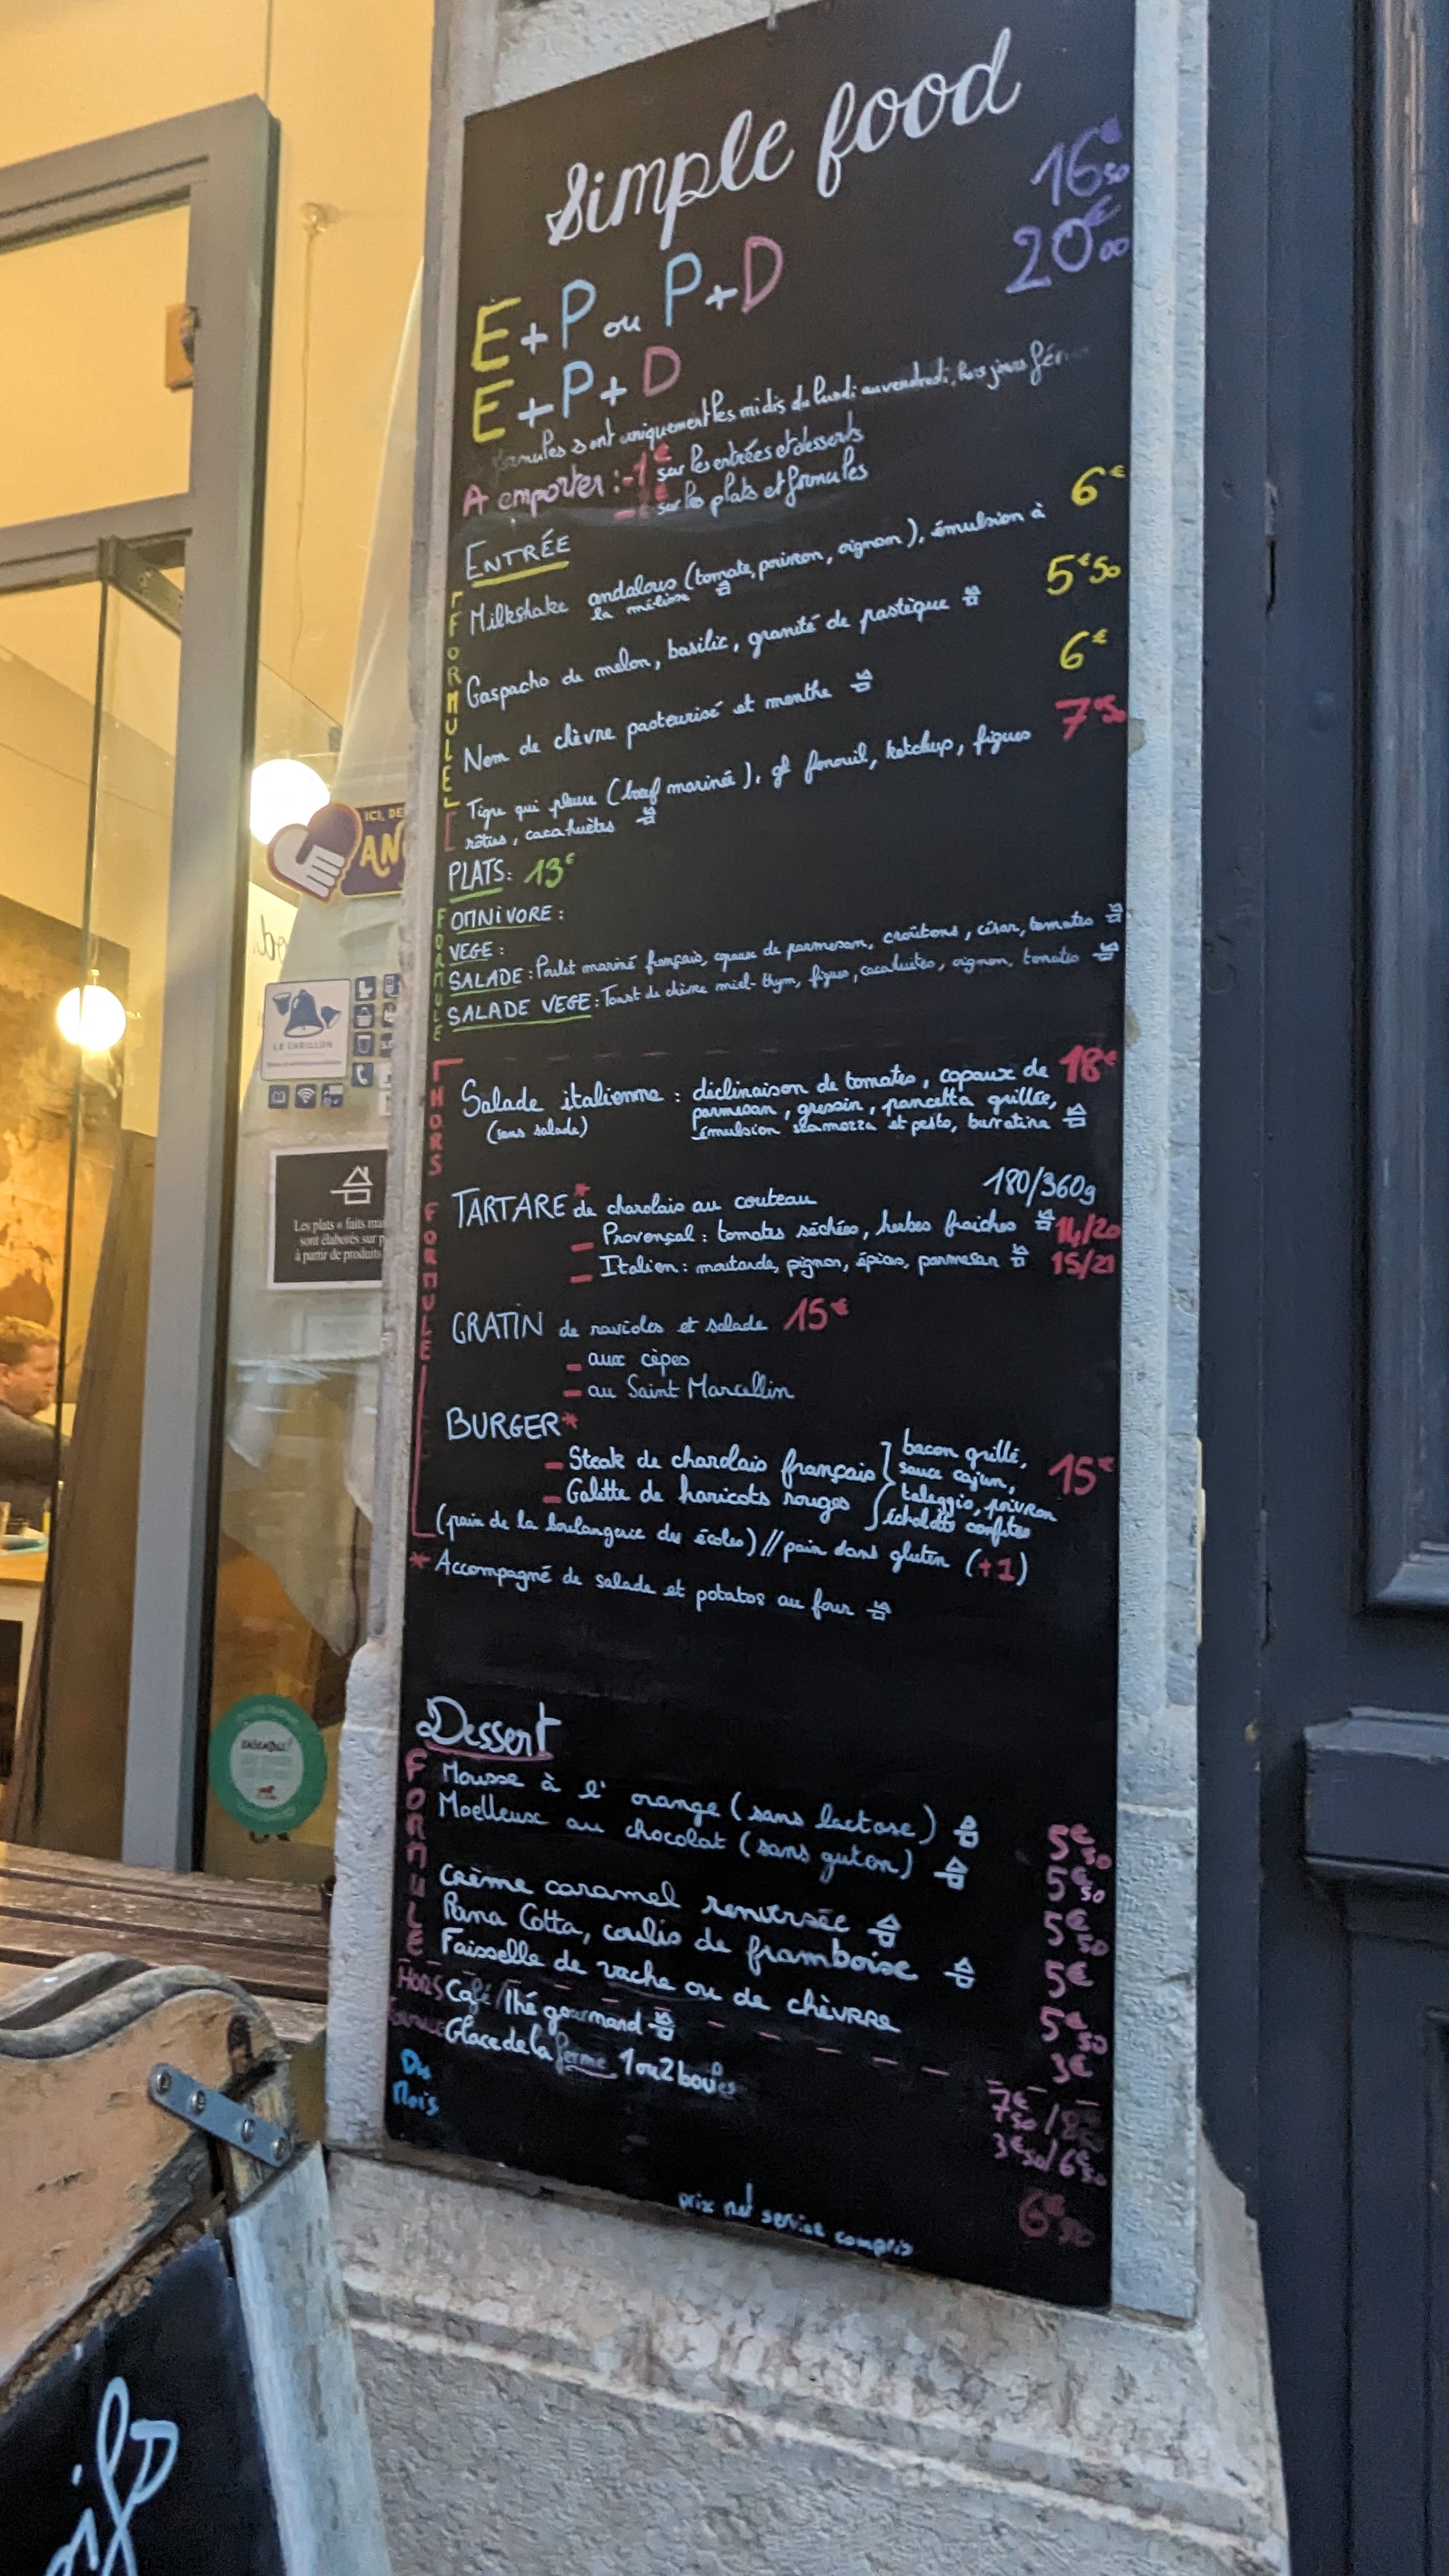 Simple food
E+P ou P+D 16€50
E+P+D 20€00
formules sont uniquement les midis du lundi au vendredi, hors jours
A emporter : -1€ sur les entrées et desserts
sur les plats et formules
ENTRÉE
FORMULE
Milkshake andalous (tomate, poivron, oignon), émulsion à 6€
la mélisse
Gaspacho de melon, basilic, granité de pastèque 5€50
Nem de chèvre pasteurisé et menthe 6€
Tigre qui pleure (bœuf mariné), fenouil, ketchup, figues 7€50
rôties, cacahuètes
PLATS: 13€
FORMULE
OMNIVORE :
VEGE :
SALADE : Poulet mariné français, copeaux de parmesan, croûtons, césar, tomates
SALADE VEGE : Toast de chèvre miel-thym, figues, cacahuètes, oignon, tomates
HORS FORMULE
Salade italienne : déclinaison de tomates, copeaux de 18€
(sans salade) parmesan, gressin, pancetta grillée,
émulsion scamozza et pesto, burratina
180/360g
TARTARE* de charolais au couteau
- Provençal : tomates séchées, herbes fraiches 14/20
- Italien : moutarde, pignon, épices, parmesan 15/21
GRATIN de ravioles et salade 15€
- aux cèpes
- au Saint Marcellin
BURGER*
- Steak de charolais français bacon grillé,
sauce cajun, 15€
- Galette de haricots rouges taleggio, poivron
échalotte confites
(pain de la boulangerie des écoles) // pain sans gluten (+1)
* Accompagné de salade et potatos au four
Dessert
FORMULE
Mousse à l'orange (sans lactose) 5€50
Moelleux au chocolat (sans guten) 5€50
Crème caramel renversée 5€50
Pana Cotta, coulis de framboise 5€
Faisselle de vache ou de chèvre 5€50
3€
HORS
Café/Thé gourmand 7€50/
Glace de la ferme 1 ou 2 boules 3€50/6€50
Du
Mois
6€50
prix net service compris
ICI, DE
AN
LE CARILLON
Les plats « faits mai
sont élaborés sur p
à partir de produits